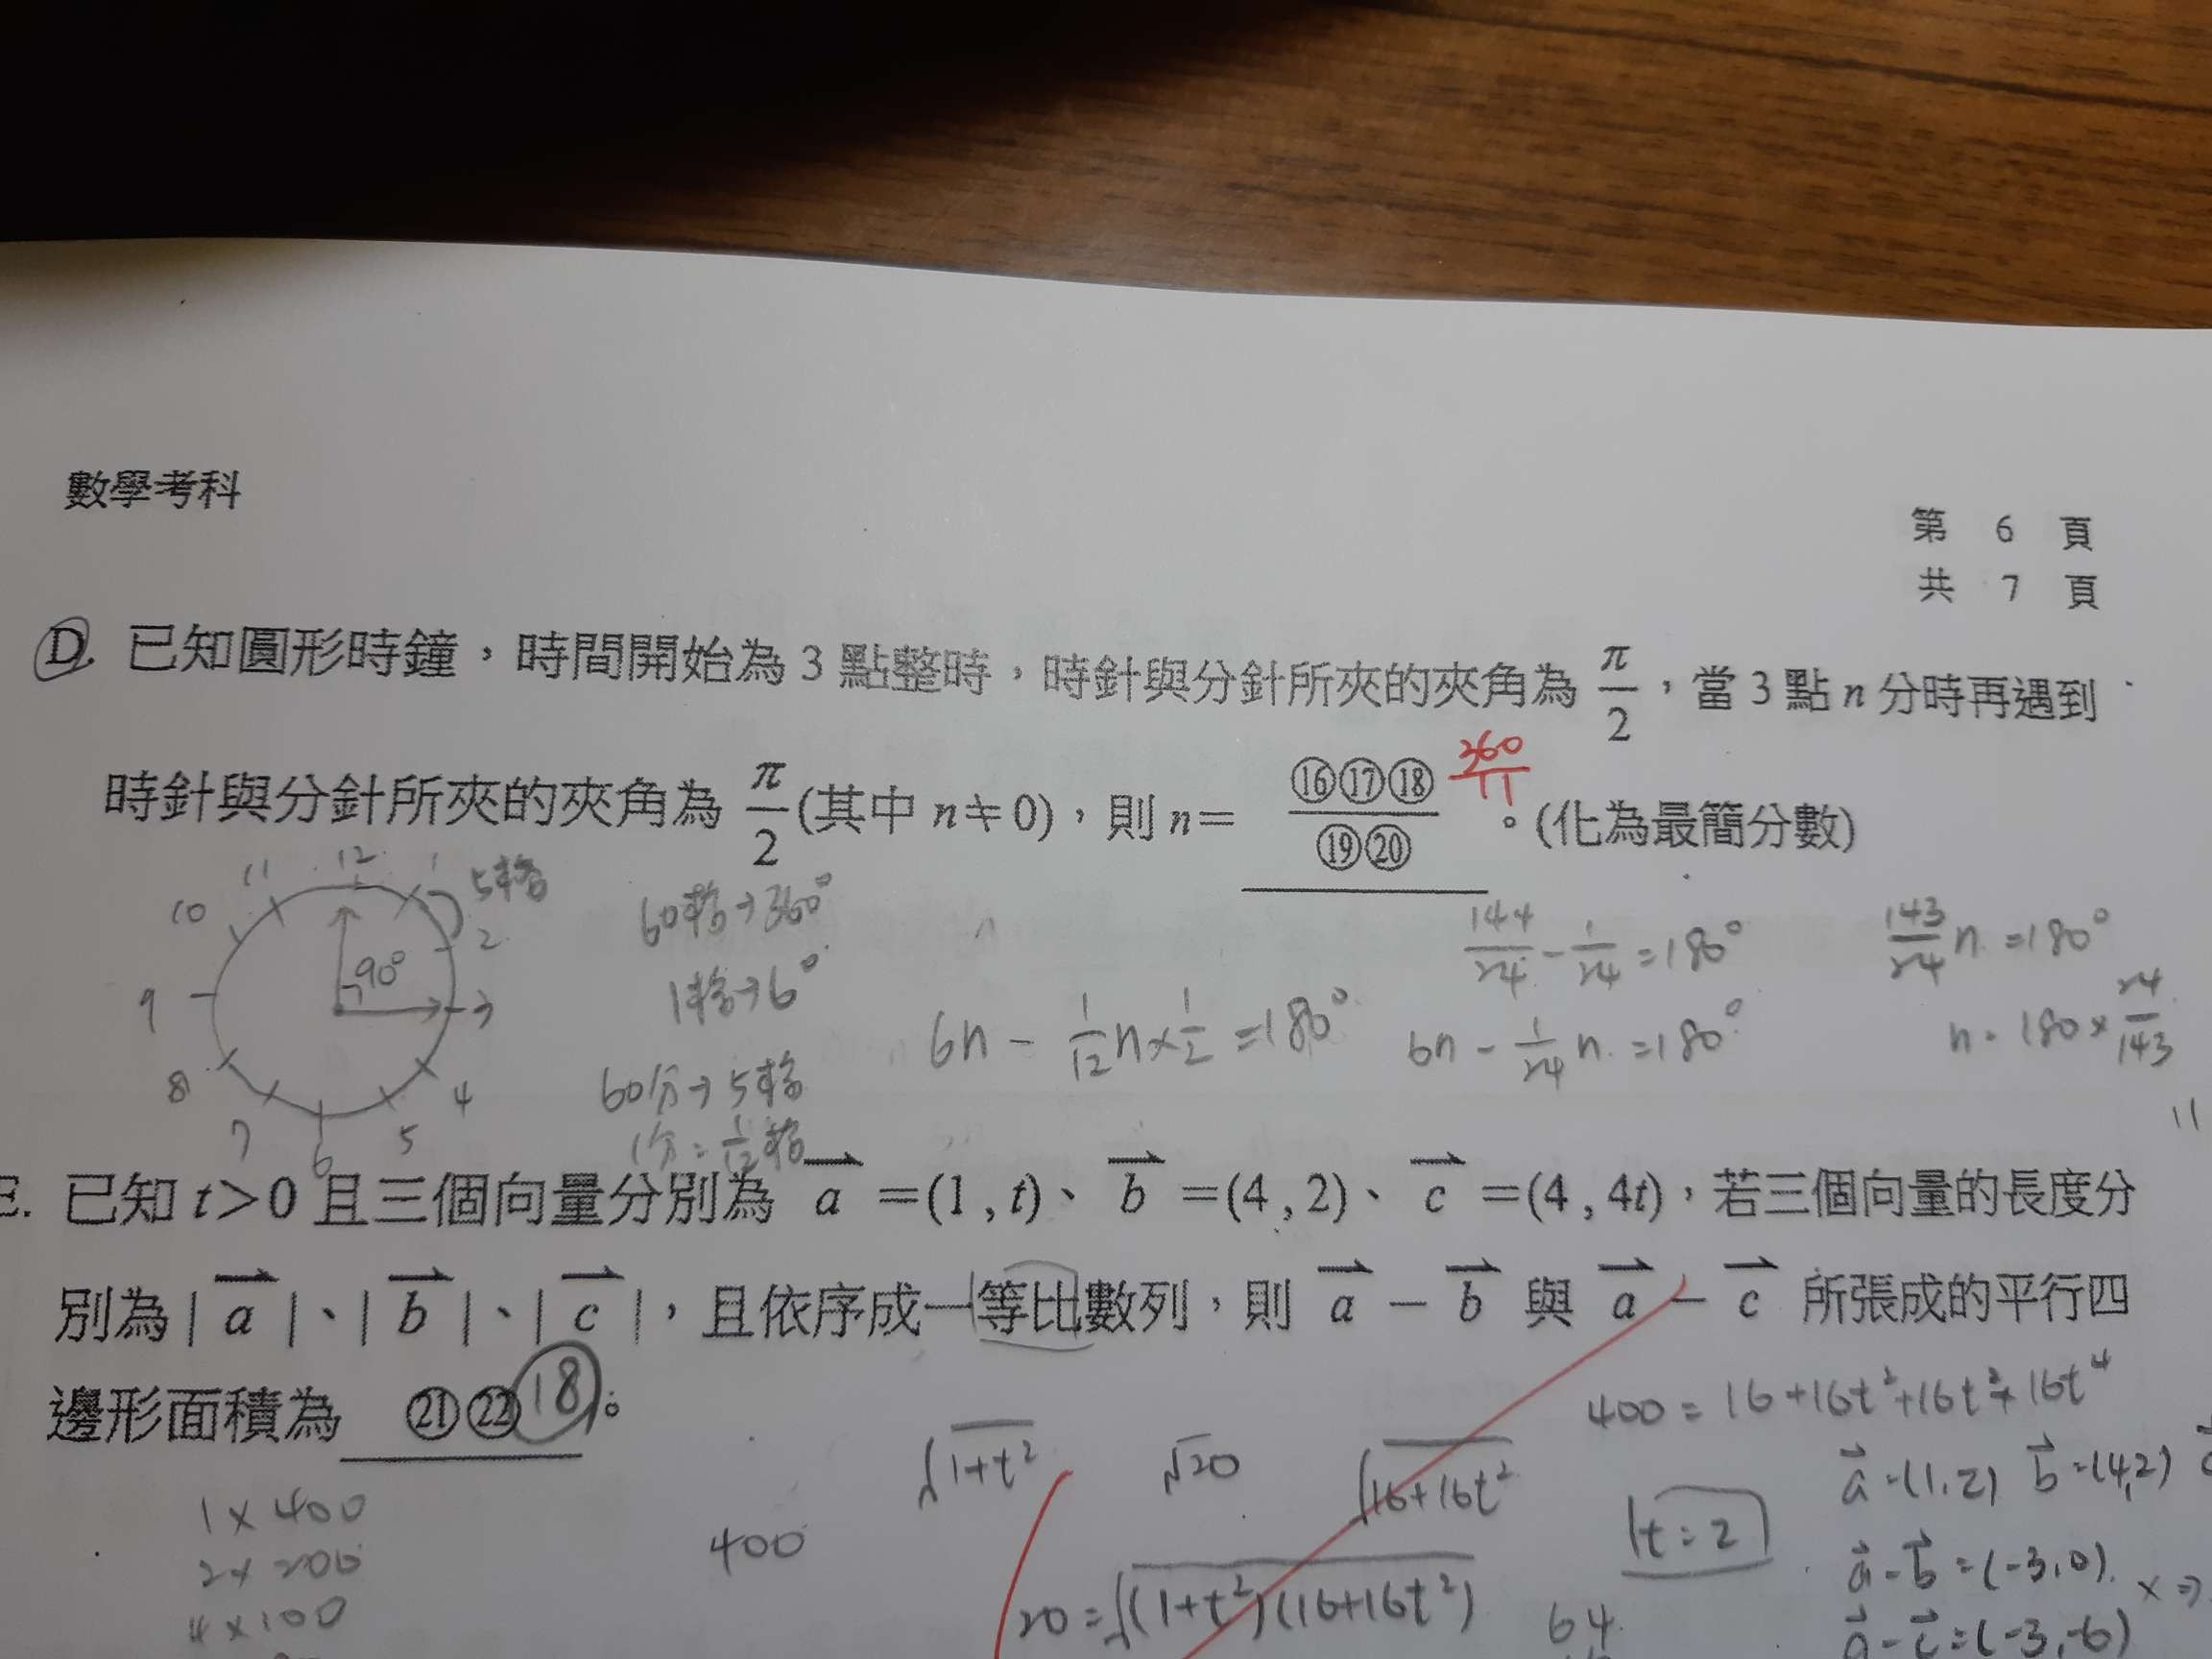 數學考科
第 6 頁
共 7 頁
D. 已知圓形時鐘，時間開始為 3 點整時，時針與分針所夾的夾角為 π/2，當 3 點 n 分時再遇到
時針與分針所夾的夾角為 π/2 (其中 n≠0)，則 n= ⑯⑰⑱/⑲⑳ 。(化為最簡分數)
360/11
12 1 2 3 4 5 6 7 8 9 10 11
5格
90°
60格→360°
1格→6°
60分→5格
1分=1/12格
6n - 1/12 n × 1/2 = 180°
144/24 - 1/24 = 180°
6n - 1/24 n = 180°
143/24 n = 180°
n = 180 × 24/143
11
E. 已知 t>0 且三個向量分別為 a⃗ =(1 , t)、 b⃗ =(4 , 2)、 c⃗ =(4 , 4t)，若三個向量的長度分
別為 | a⃗ |、| b⃗ |、| c⃗ |，且依序成一等比數列，則 a⃗ － b⃗ 與 a⃗ － c⃗ 所張成的平行四
邊形面積為 ㉑㉒ 18 。
1×400
2×200
4×100
400
√(1+t²) √20 √(16+16t²)
20=√((1+t²)(16+16t²))
400=16+16t²+16t²+16t⁴
t=2
64
a⃗=(1,2) b⃗=(4,2)
a⃗-b⃗=(-3,0)
a⃗-c⃗=(-3,-6)